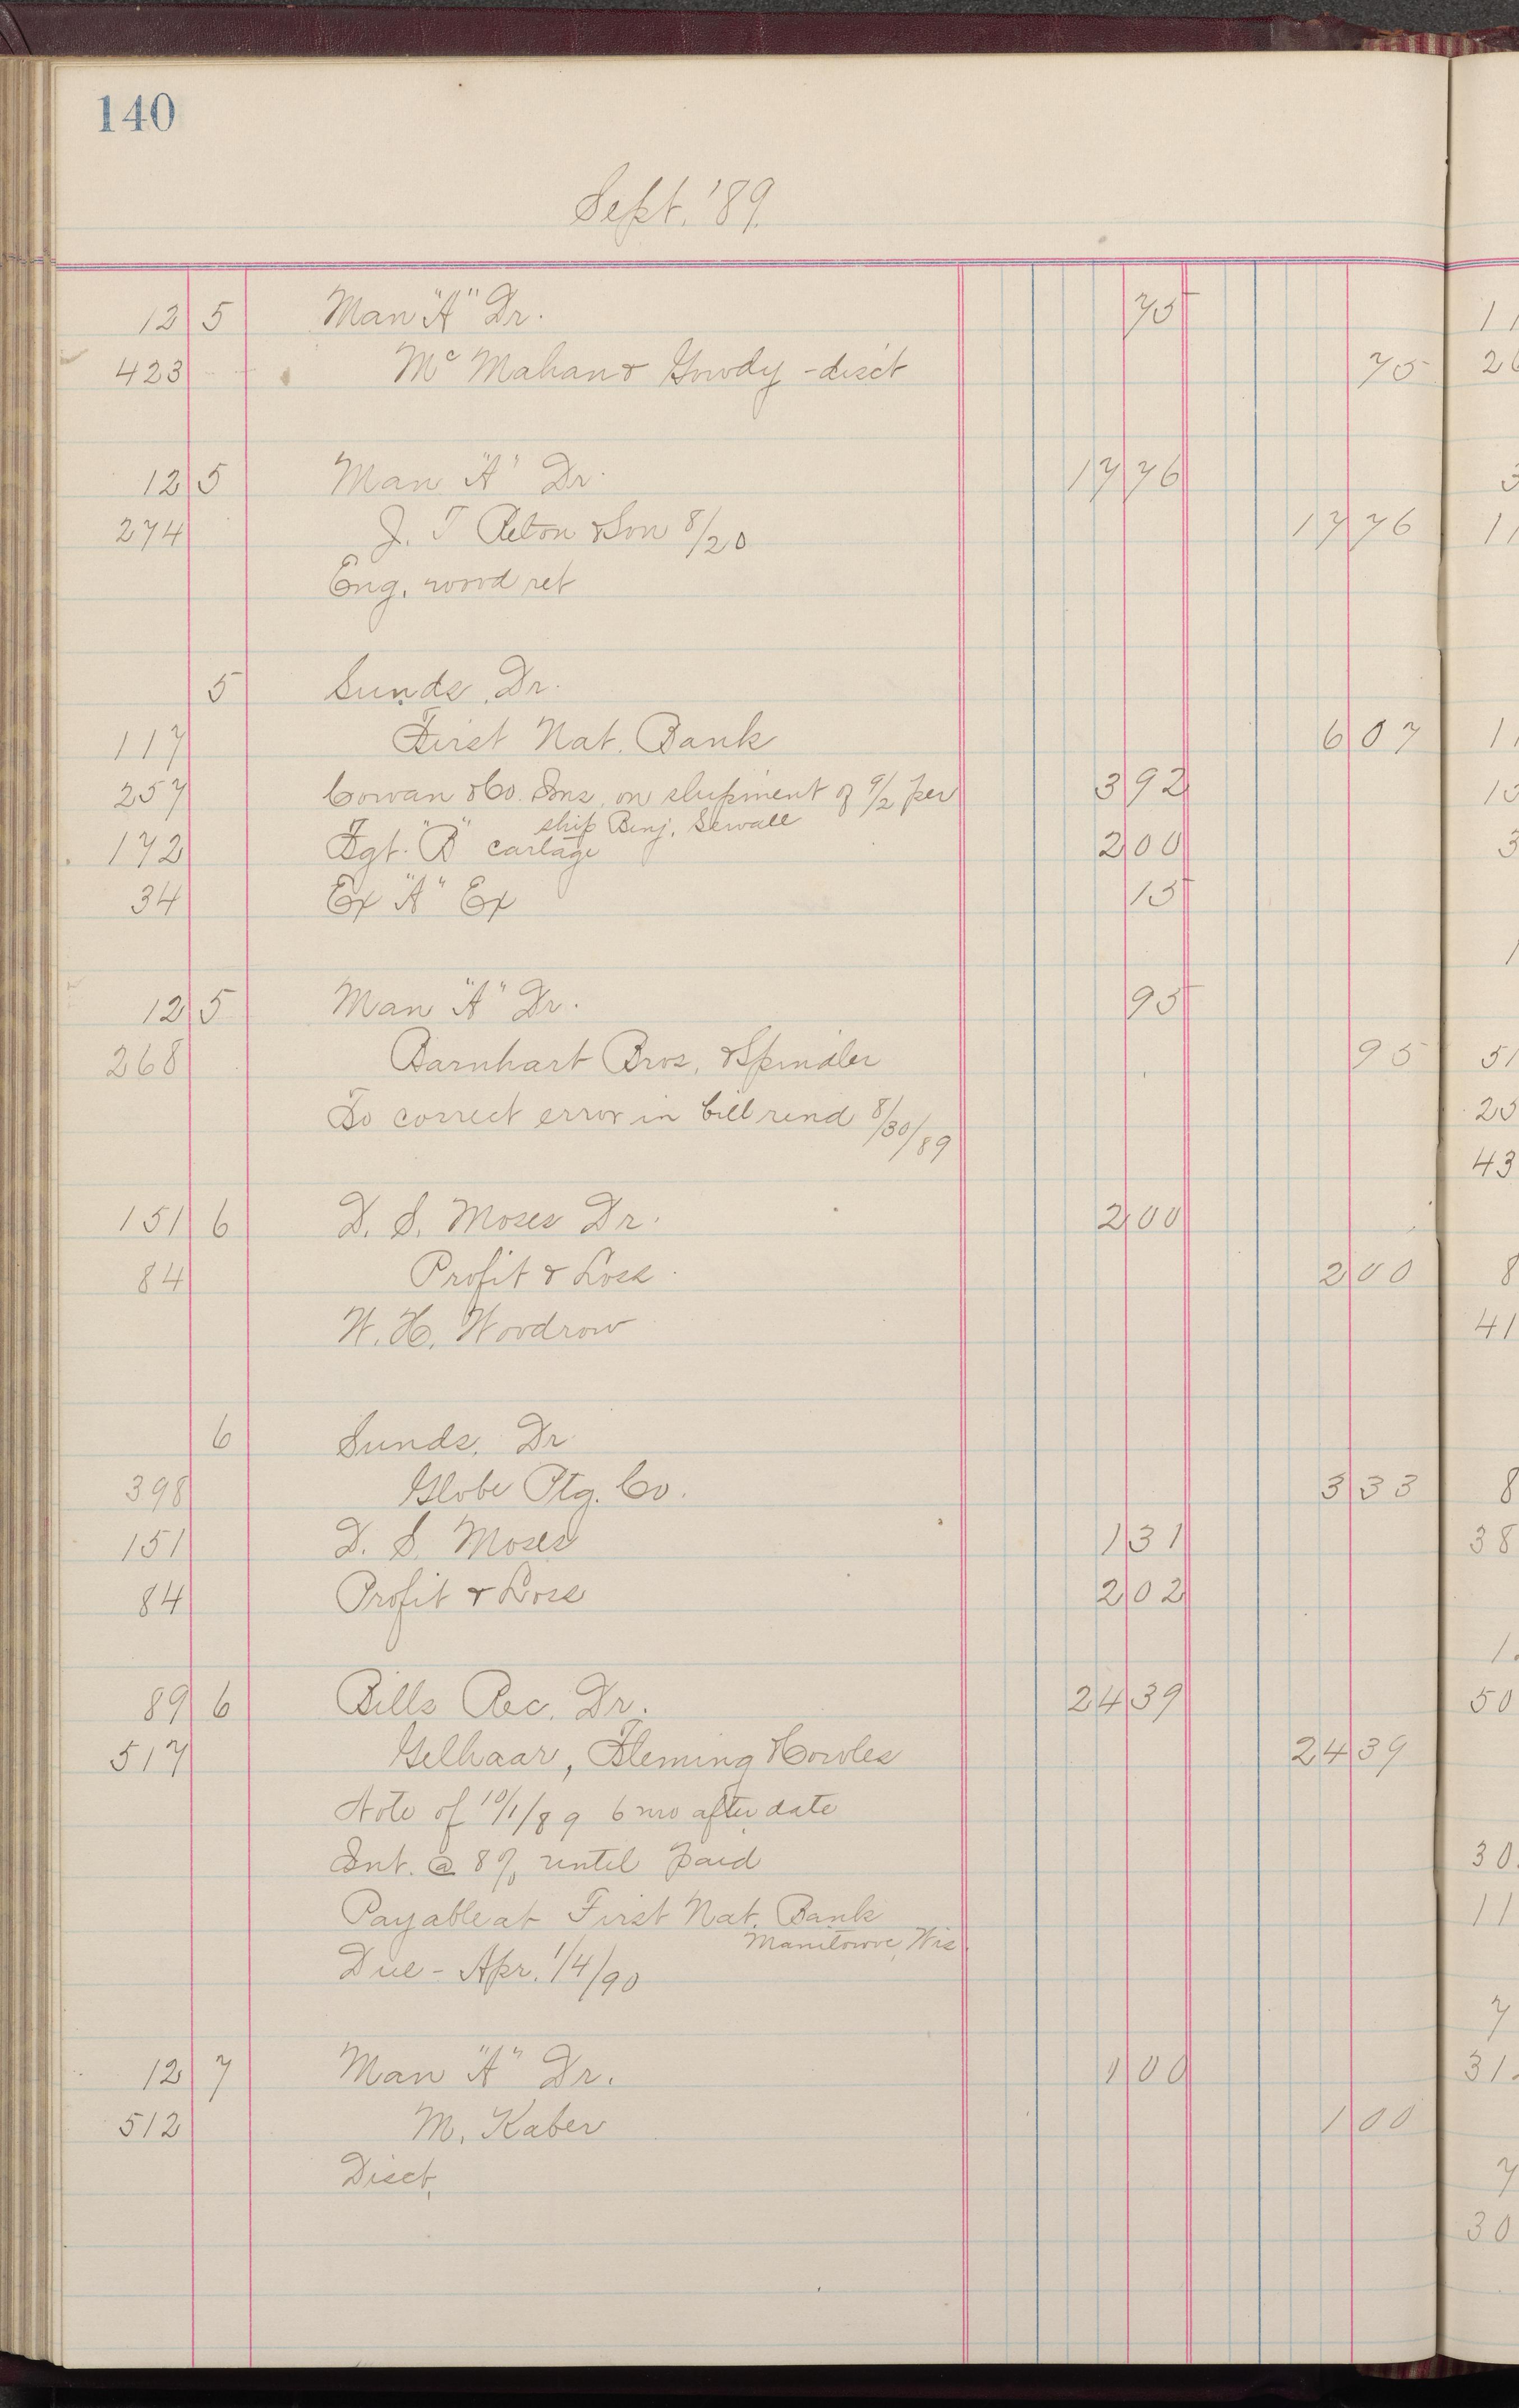 140
Sept. '89.
12 5 Man "A" Dr. 75
423 Mc Mahan & Gowdy - disct 75
12 5 Man "A" Dr 17 76
274 J. T Reton & Son 8/20 17 76
Eng. wood ret
5 Sunds. Dr.
117 First Nat. Bank 6 07
257 Cowan & Co. Ins. on shipment of 9/2 per 3 92
ship Benj. Sewall
172 Fgt. "B" cartage 2 00
34 Ex "A" Ex 15
12 5 Man "A" Dr. 95
268 Barnhart Bros. & Spindler 95
To correct error in bill rend 8/30/89
151 6 D. S. Moses Dr. 2 00
84 Profit & Loss. 2 00
W. H. Woodrow
6 Sunds. Dr
398 Globe Ptg. Co. 3 33
151 D. S. Moses 1 31
84 Profit & Loss 2 02
89 6 Bills Rec. Dr. 24 39
517 Gelhaar, Fleming & Cowles 24 39
Note of 10/1/89 6 mo after date
Int. @ 8% until paid
Payable at First Nat. Bank
Manitowoc, Wis.
Due - Apr. 1/4/90
12 7 Man "A" Dr. 1 00
512 M. Kaber 1 00
Disct.